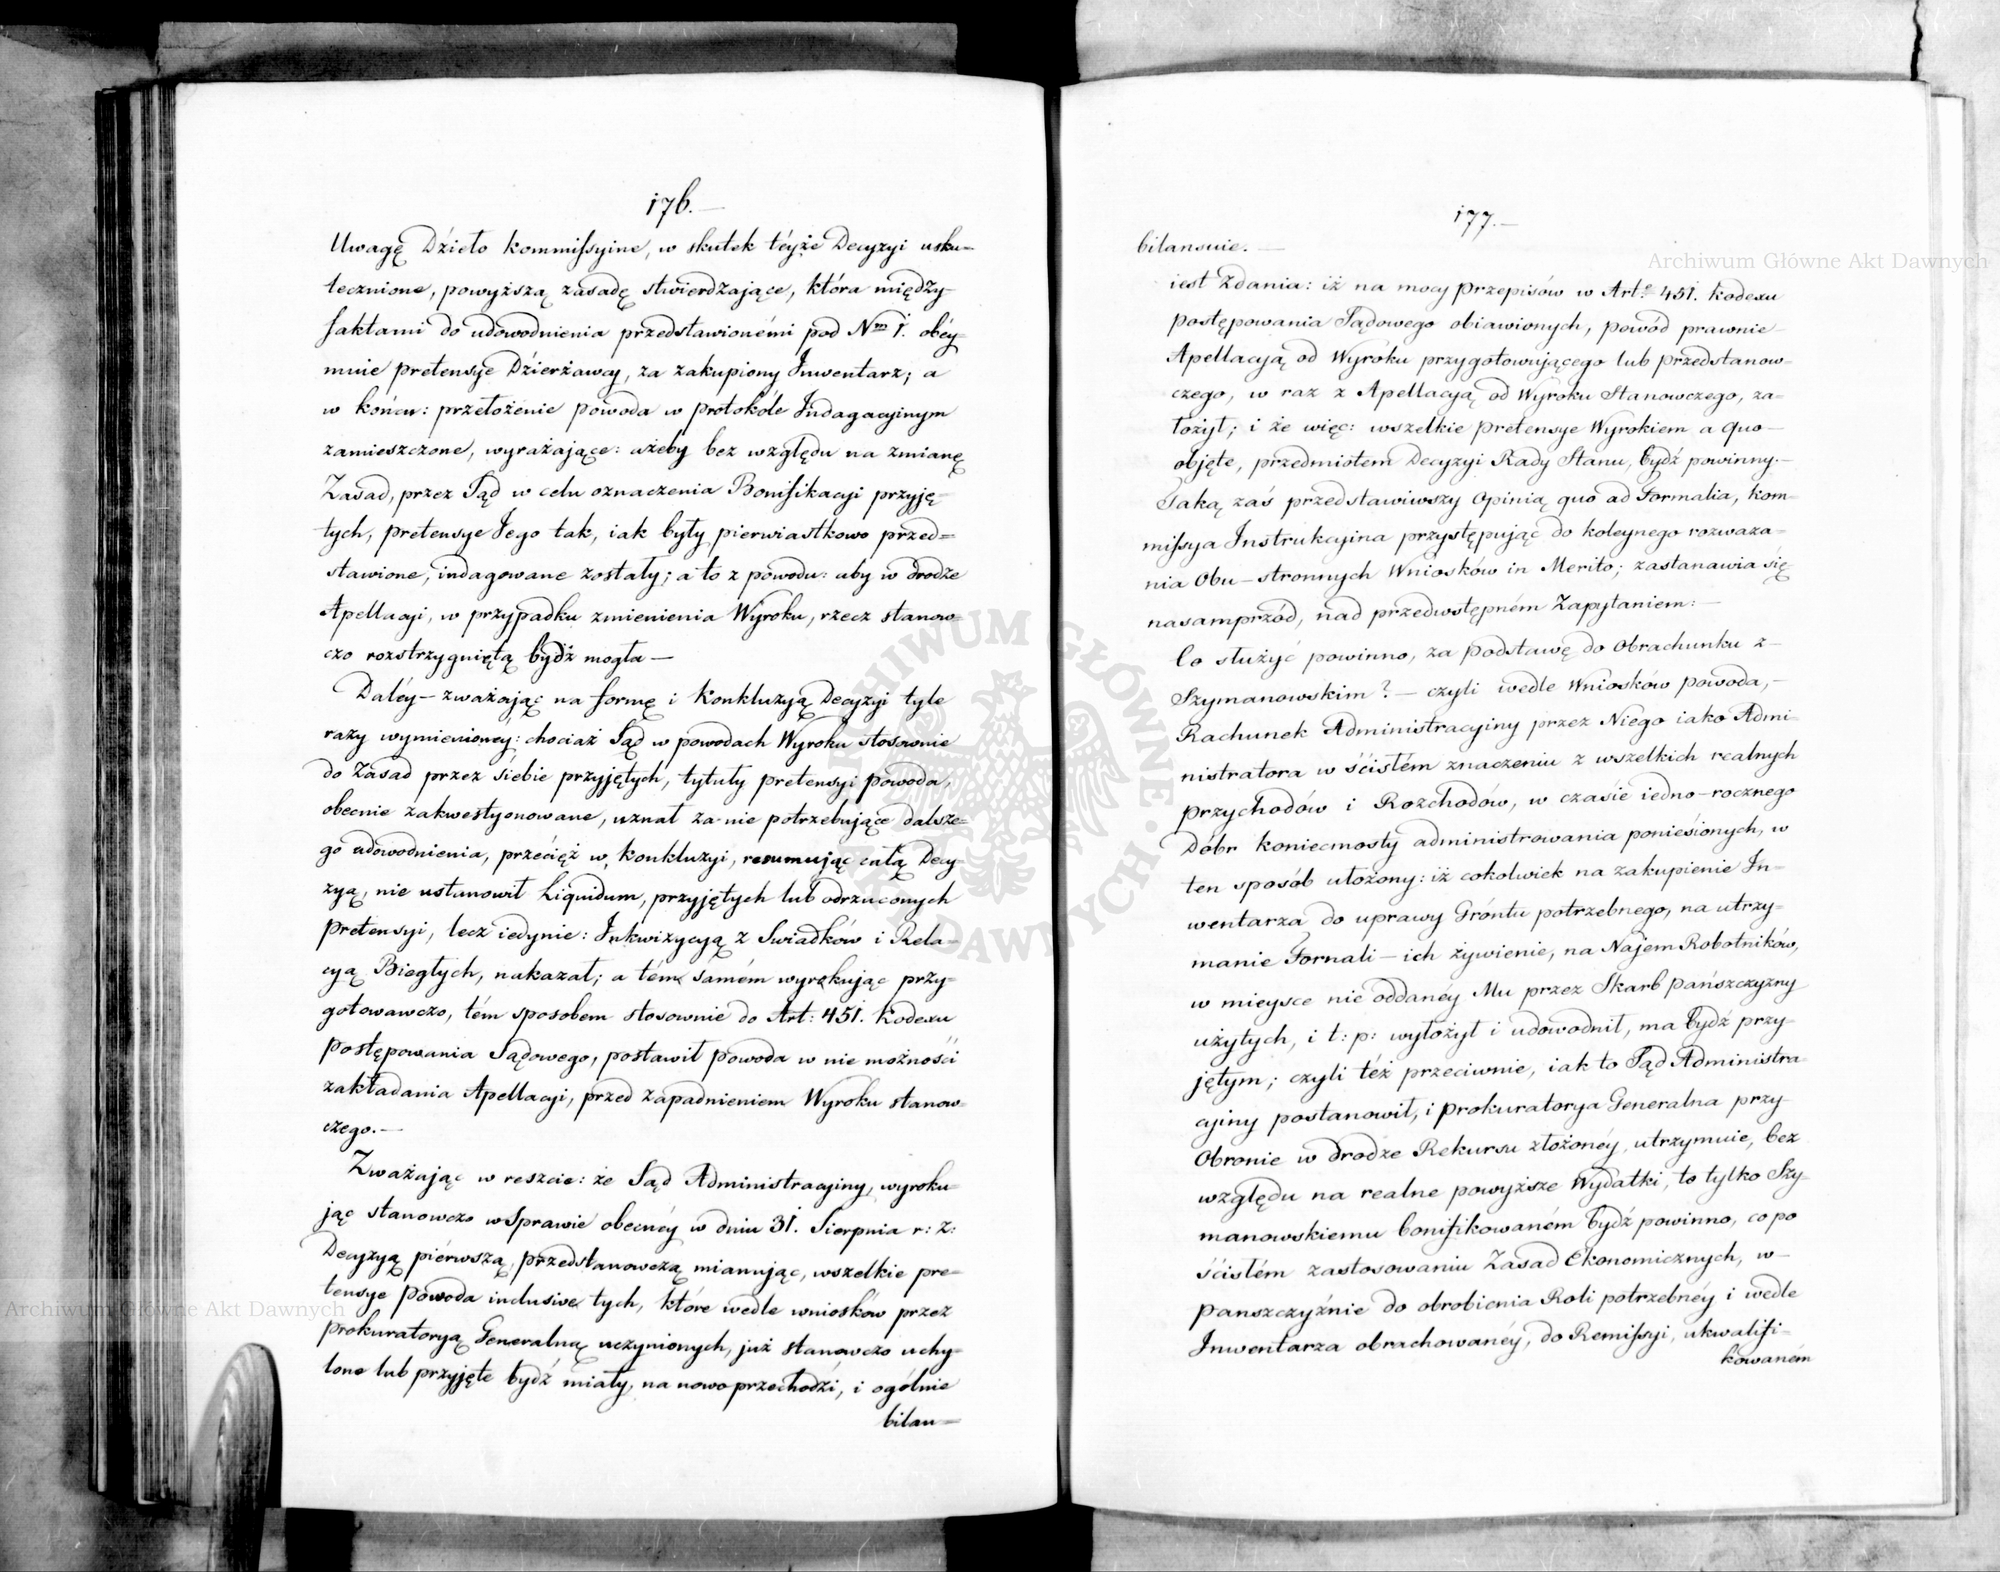 176.
Uwagę Dzieło kommissyine, w skutek téyże Decyzyi usku=
tecznione, powyższą zasadę stwierdzaiące, która między
faktami do udowodnienia przedstawionémi pod Nm 1. obéy-
muie pretensye Dzierżawcy, za zakupiony Inwentarz; a
w końcu: przełożenie powoda w protokóle Indagacyinym
zamieszczone, wyrażaiące: ażeby bez względu na zmianę
Zasad, przez Sąd w celu oznaczenia Bonifikacyi przyię=
tych, pretensye Jego tak, iak były pierwiastkowo przed=
stawione, indagowane zostały; a to z powodu: aby w drodze
Apellacyi, w przypadku zmienienia Wyroku, rzecz stanow=
czo rozstrzygniętą bydź mogła —
Daléy — zważaiąc na formę i Konkluzyą Decyzyi tyle
razy wymienioney: chociaż Sąd w powodach Wyroku stosownie
do Zasad przez siebie przyjętych, tytuły pretensyi powoda,
obecnie zakwestyonowane, uznał za nie potrzebujące dalsze=
go udowodnienia, przecięż w konkluzyi, resumując całą Decy-
zyą, nie ustanowił Liquidum, przyjętych lub odrzuconych
pretensyi, lecz iedynie: Inkwizycyą z Swiadków i Rela-
cyą Biegłych, nakazał; a tém samém wyrokując przy-
gotowawczo, tém sposobem stosownie do Art: 451. Kodexu
postępowania Sądowego, postawił powoda w nie możności
zakładania Apellacyi, przed zapadnieniem Wyroku stanow-
czego. —
Zważając w reszcie: że Sąd Administracyiny, wyroku-
jąc stanowczo w Sprawie obecnéy w dniu 31. Sierpnia r: z:
Decyzyą pierwszą, przedstanowczą mianując, wszelkie pre=
tensye Powoda inclusive tych, które wedle wniosków przez
prokuratoryą Generalną uczynionych, już stanowczo uchy-
lone lub przyjęte bydź miały, na nowo przechodzi, i ogólnie
bilan=
177.
bilansuie. —
iest Zdania: iż na mocy przepisów w Art.e 451. Kodexu
postępowania Sądowego obiawionych, powód prawnie
Apellacyją od Wyroku przygotowującego lub przedstanow-
czego, w raz z Apellacyją od Wyroku Stanowczego, za=
łożył; i że więc: wszelkie pretensye Wyrokiem a quo —
objęte, przedmiotem Decyzyi Rady Stanu, bydź powinny. —
Taką zaś przedstawiwszy opinią, quo ad Formalia, kom=
missya Instrukcyina przystępując do koleynego rozważa-
nia Obu-stronnych Wniosków in Merito; zastanawia się
nasamprzód, nad przedwstępném Zapytaniem: —
Co służyć powinno, za podstawę do Obrachunku z —
Szymanowskim? — czyli wedle Wniosków powoda, —
Rachunek Administracyiny przez Niego iako Admi-
nistratora w ścisłém znaczeniu z wszelkich realnych
przychodów i Rozchodów, w czasie iedno-rocznego
Dóbr koniecmosty administrowania poniesionych, w
ten sposób ułożony: iż cokolwiek na zakupienie In-
wentarza do uprawy Gróntu potrzebnego, na utrzy-
manie Fornali — ich żywienie, na Najem Robotników,
w mieysce nie oddanéy Mu przez Skarb pańszczyzny
użytych, i t: p: wyłożył i udowodnił, ma bydź przy-
jętym; czyli téż przeciwnie, iak to Sąd Administra-
cyiny postanowił, i prokuratorya Generalna przy
Obronie w drodze Rekursu złożonéy, utrzymuie, bez
względu na realne powyższe Wydatki, to tylko Szy-
manowskiemu bonifikowaném bydź powinno, co po
ścisłém zastosowaniu Zasad Ekonomicznych, w —
panszczyźnie do obrobienia Roli potrzebnéy i wedle
Inwentarza obrachowanéy, do Remissyi, ukwalifi-
kowaném
Archiwum Główne Akt Dawnych
Archiwum Główne Akt Dawnych
ARCHIWUM GŁÓWNE AKT DAWNYCH